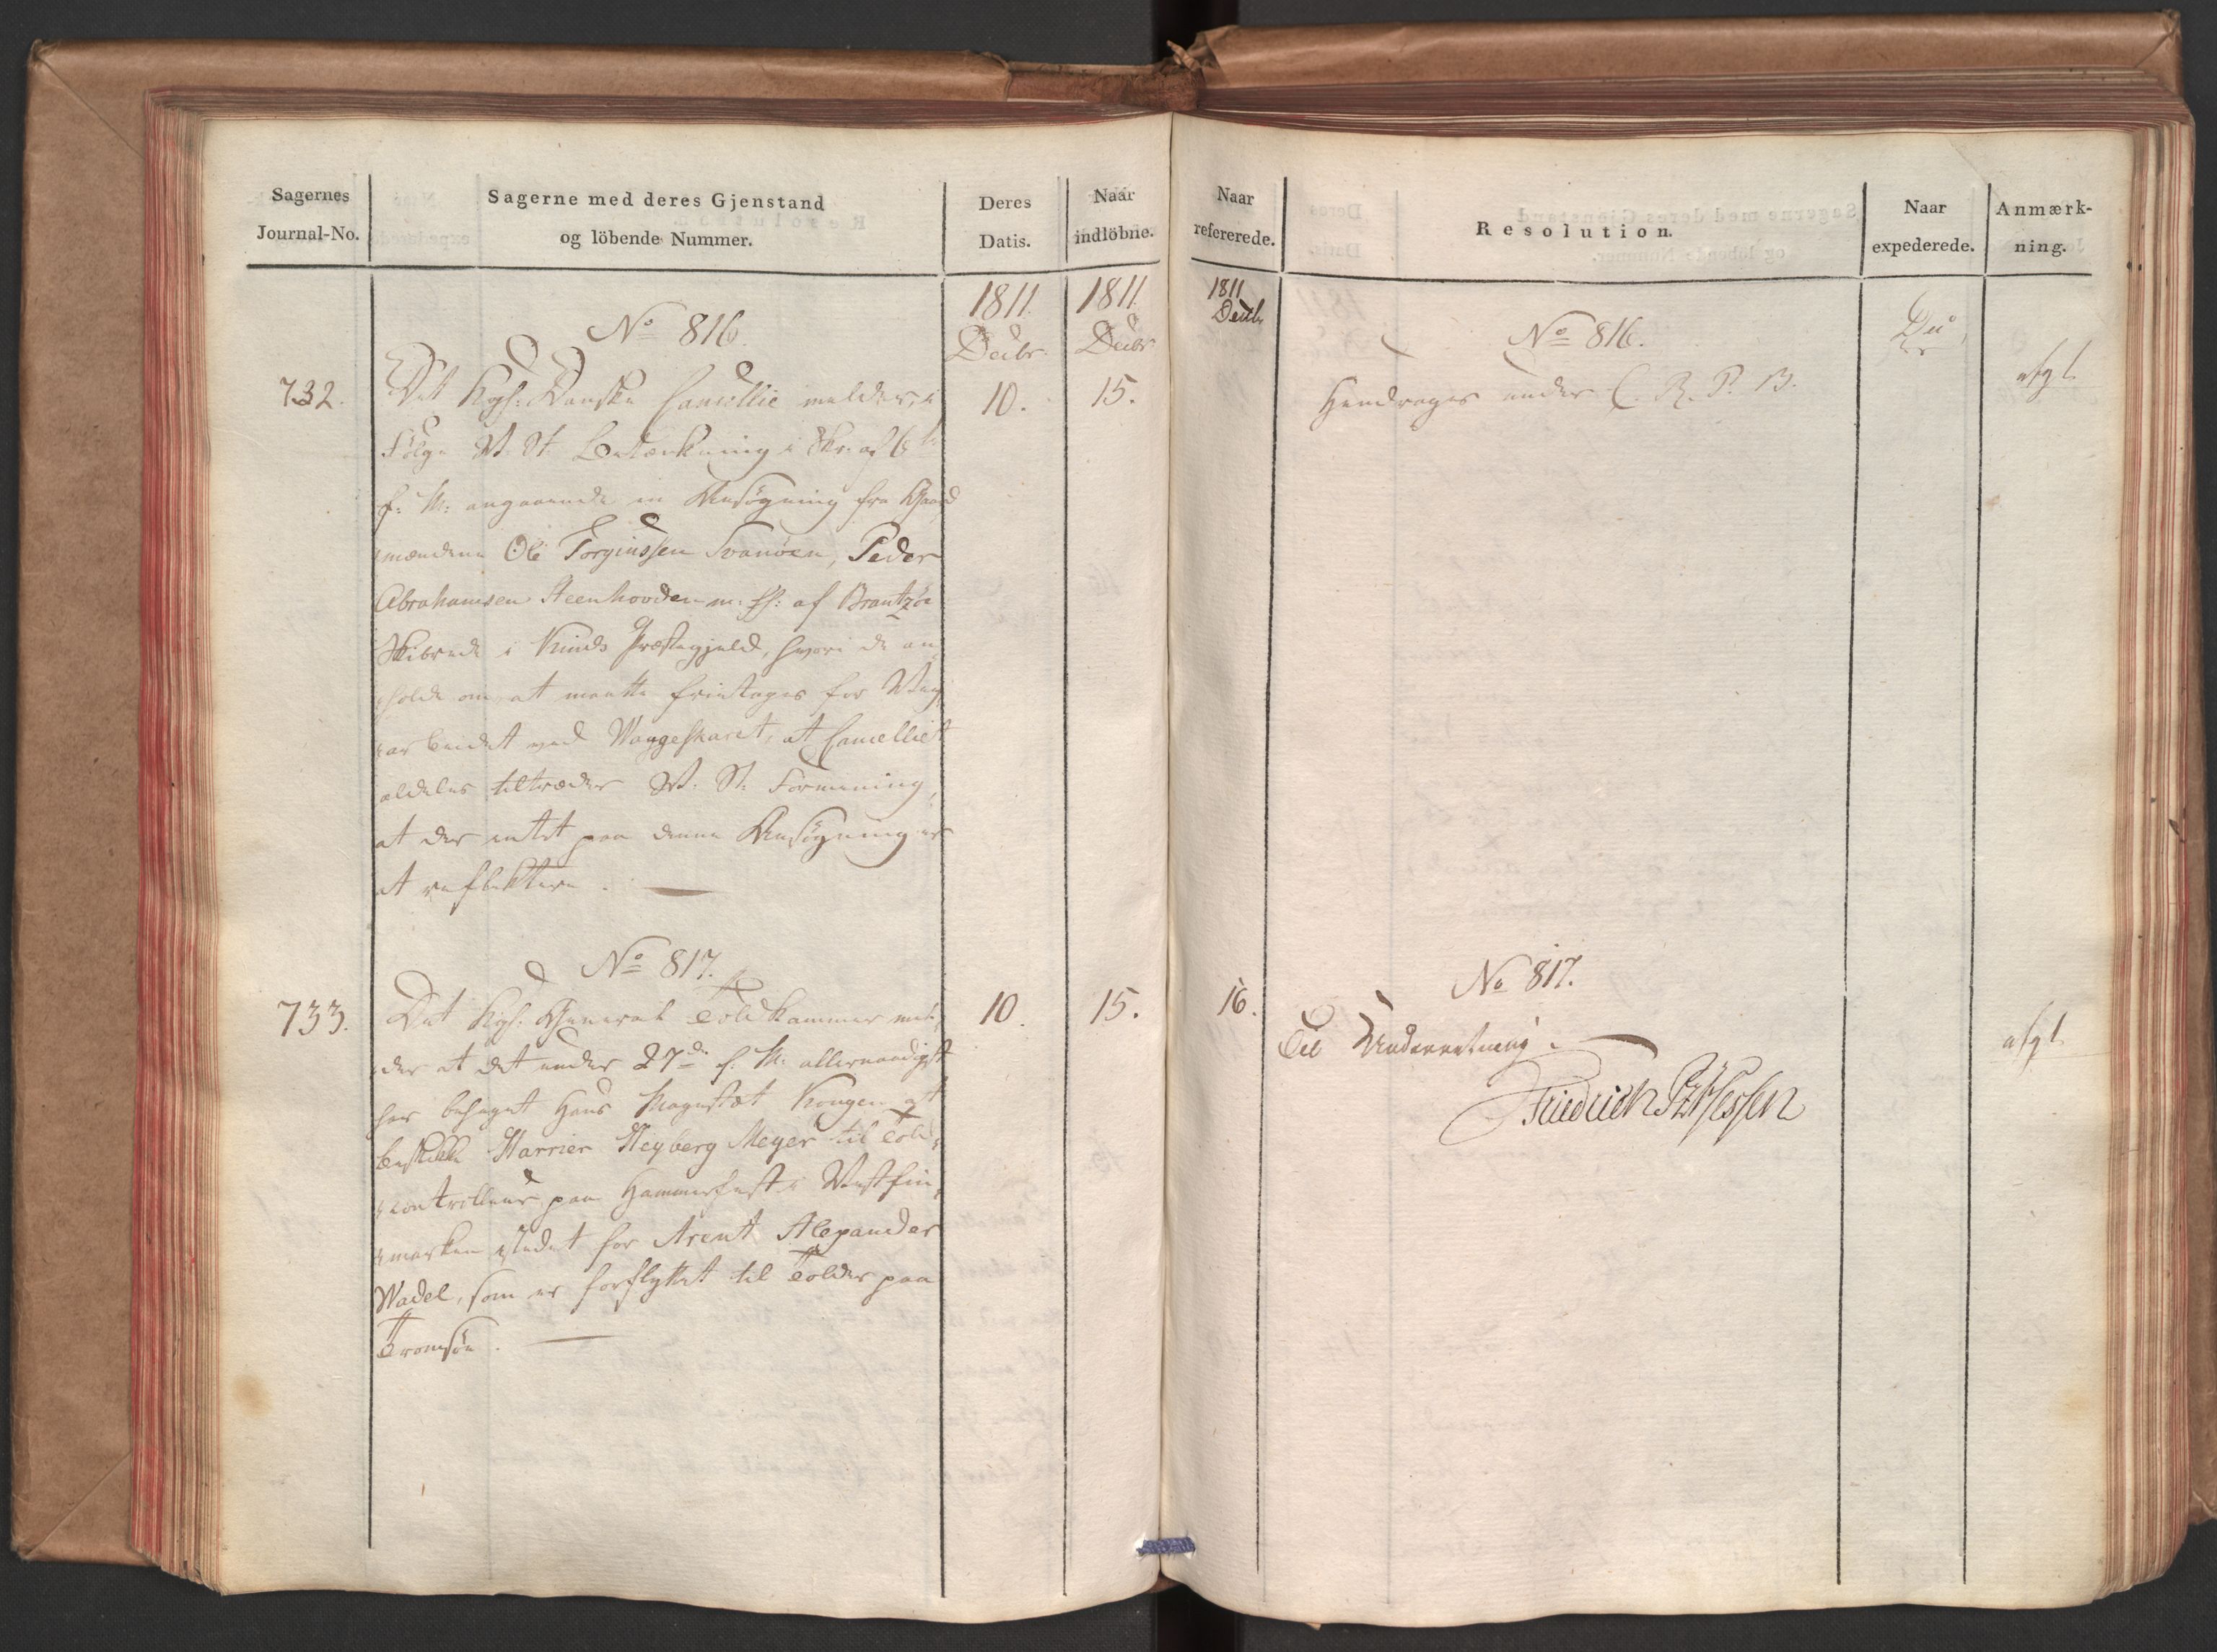 Sagernes
Journal-No.
Sagerne med deres Gjenstand
og löbende Nummer.
Deres
Datis.
Naar
indlöbne.
1811 Decbr
1811 Decbr
No 816.
732.
Det Kgl: Danske Cancellie melder, i
10.
15.
Følge W. St. Betænkning i Skr. af 6te
f: M: angaaende en Ansøgning fra Gaard
mændene Ole Torginssen Svanøen, Peder
Abrahamsen Steenhovden m: fl: af Brantzøe
Skibrede i Kinds Præstegjeld, hvori de an
holde om at maatte fritages for Vey
arbeidet ved Vaageskaret, at Cancelliet
aldeles tiltræder W. St. Formening,
at der intet paa denne Ansøgning er
at reflektere.
No 817.
733.
Det Kgl. General Toldkammer mel
10.
15.
der at det under 27de f. M. allernaadigst
har behaget Hans Majestæt Kongen at
beskikke Harrier Heyberg Meyer til Told
controlleur paa Hammerfest i Vestfin
marken istedet for Arent Alexander
Wadel, som er forflyttet til Tolder paa
Tromsøe.
Naar
refererede.
Resolution.
Naar
expederede.
Anmærk-
ning.
1811
Decbr
No 816.
Henlægges under C. R. P. B.
afgt
No 817.
16.
Til Underretning.
afgt
Friedrich